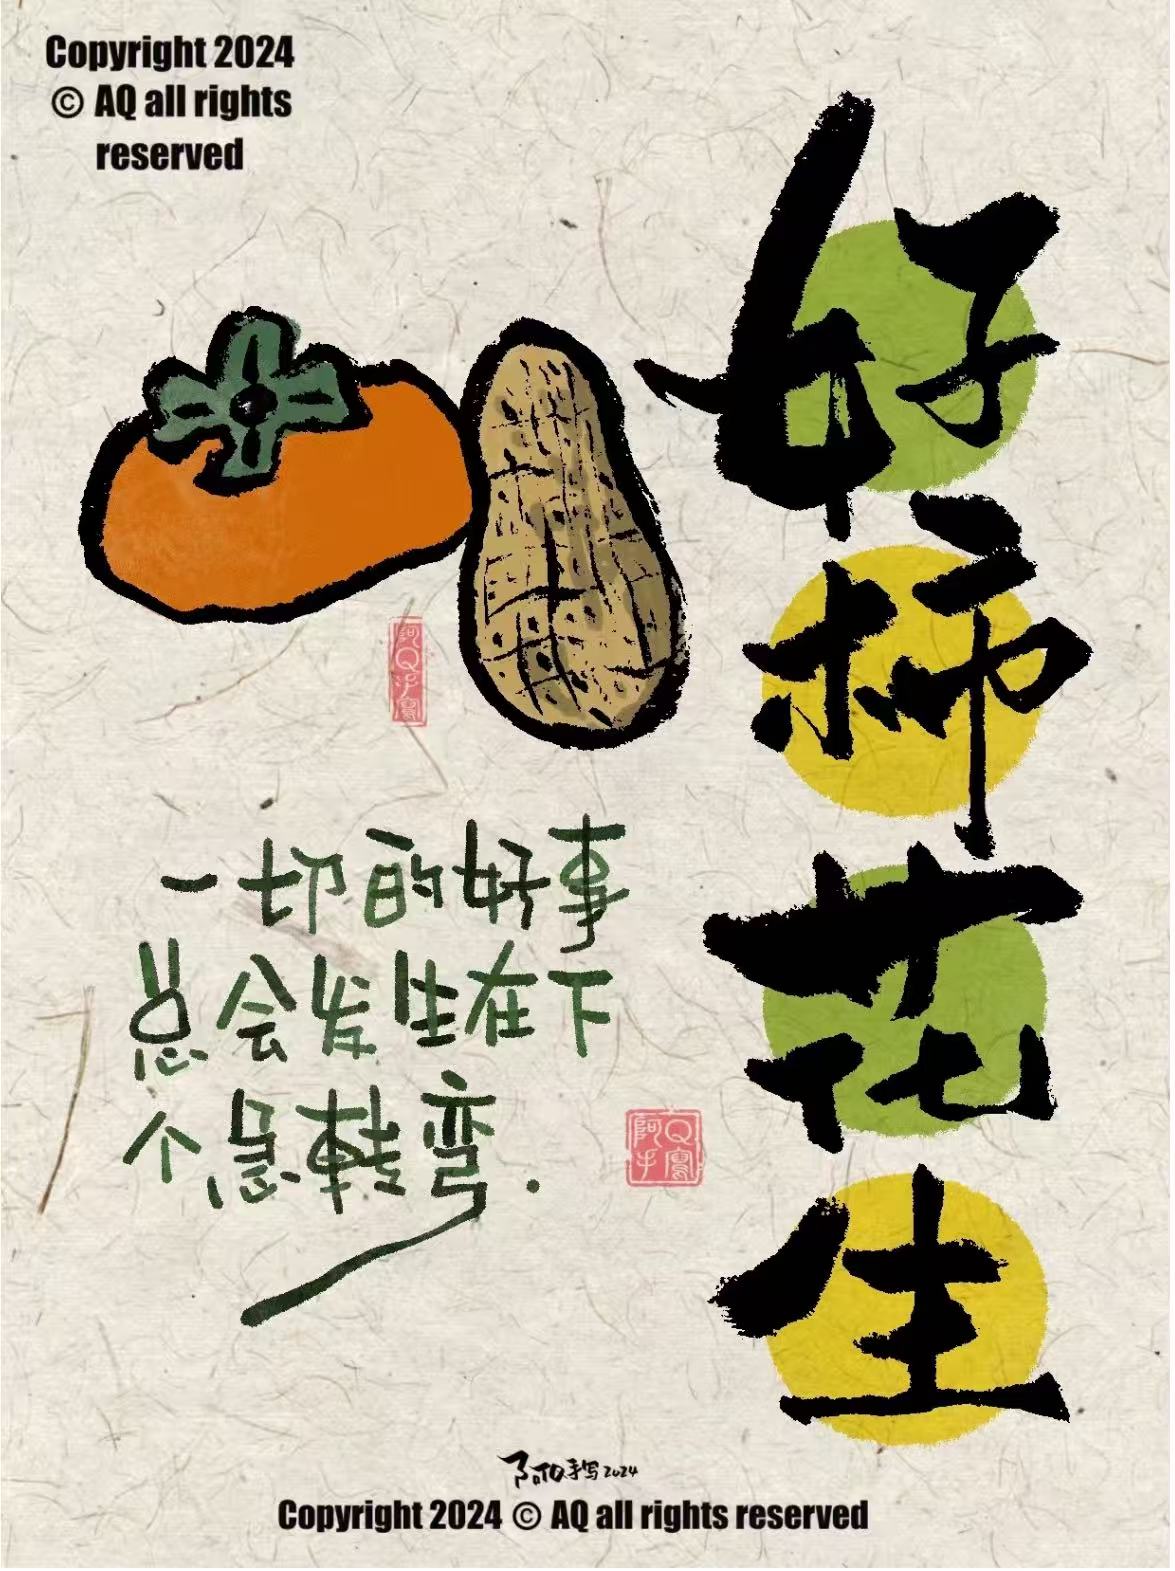 Copyright 2024
© AQ all rights
reserved
好柿花生
一切的好事
总会发生在下
个急转弯.
阿Q手写
阿Q手写
阿Q手写2024
Copyright 2024 © AQ all rights reserved